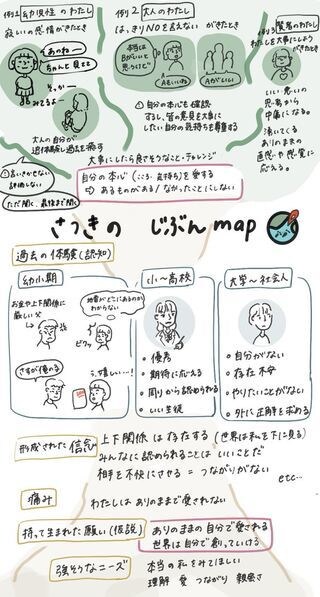 例1 幼児性のわたし
寂しいの感情がきたとき
あのね〜
ちゃんと見てて
そっかー
みてるよー
大人の自分が
追体験し過去を癒す
例2 大人のわたし
はっきりNOを言えない がきたとき
本当は
Bがいいと
思うけど
Aもいいね
Aがいい
① 自分の本心を確認
すると、皆の意見を大事に
したい自分の気持ちを尊重する
例3 賢者のわたし
わたしを大事にしよう
がきたとき
いい悪いの
思考から
中庸になる。
沸いてくる
ありのままの
直感や感覚に
応える。
①言いきかせない
評価しない
ただ聞く、最後まで聞く
大事にしたら良さそうなこと・チャレンジ
自分の本心(こころ・気持ち)を愛する
⇨ あるものがある/なかったことにしない
さつきの じぶんmap
過去の体験(認知)
幼少期
お金や上下関係に
厳しい父
地雷がどこにあるのか
わからない
ビクッ
さすが俺の子
う、嬉しい…!
小〜高校
優秀
期待に応える
周りから認められる
いい生徒
大学〜社会人
自分がない
存在不安
やりたいことがない
外に正解を求める
形成された信念
上下関係は存在する(世界は私を下に見る)
みんなに認められることはいいことだ
相手を不快にさせる = つながりがない
etc…
痛み
わたしはありのままで愛されない
持って生まれた願い(仮説)
ありのままの自分で愛される
世界は自分で創っていける
強そうなニーズ
本当の私をみてほしい
理解 愛 つながり 親密さ